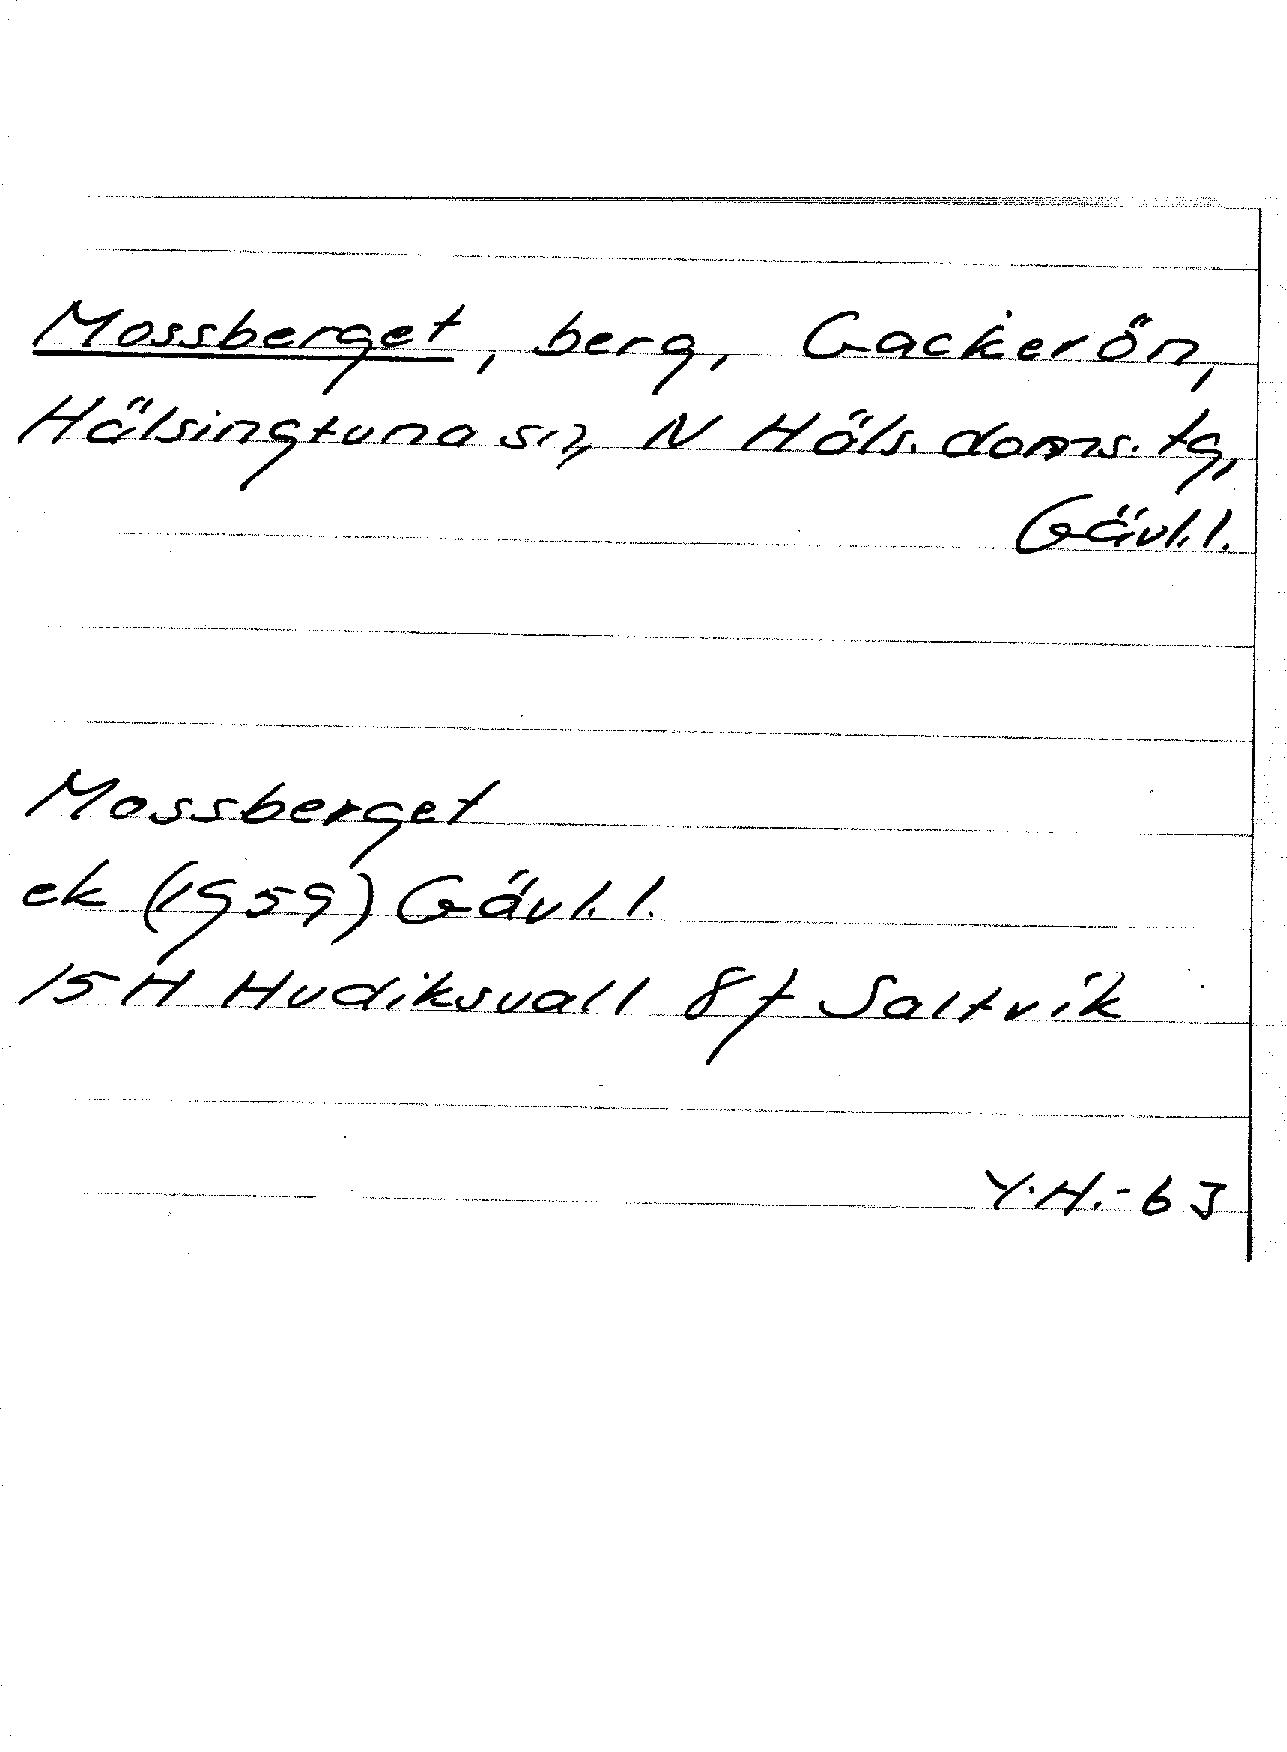 Mossberget, berg, Gackerön,
Hälsingtuna sn, N Häls. doms. tg,
Gävl. l.
Mossberget
ek (1959) Gävl. l.
15 H Hudiksvall 8f Saltvik
Y.H.-63